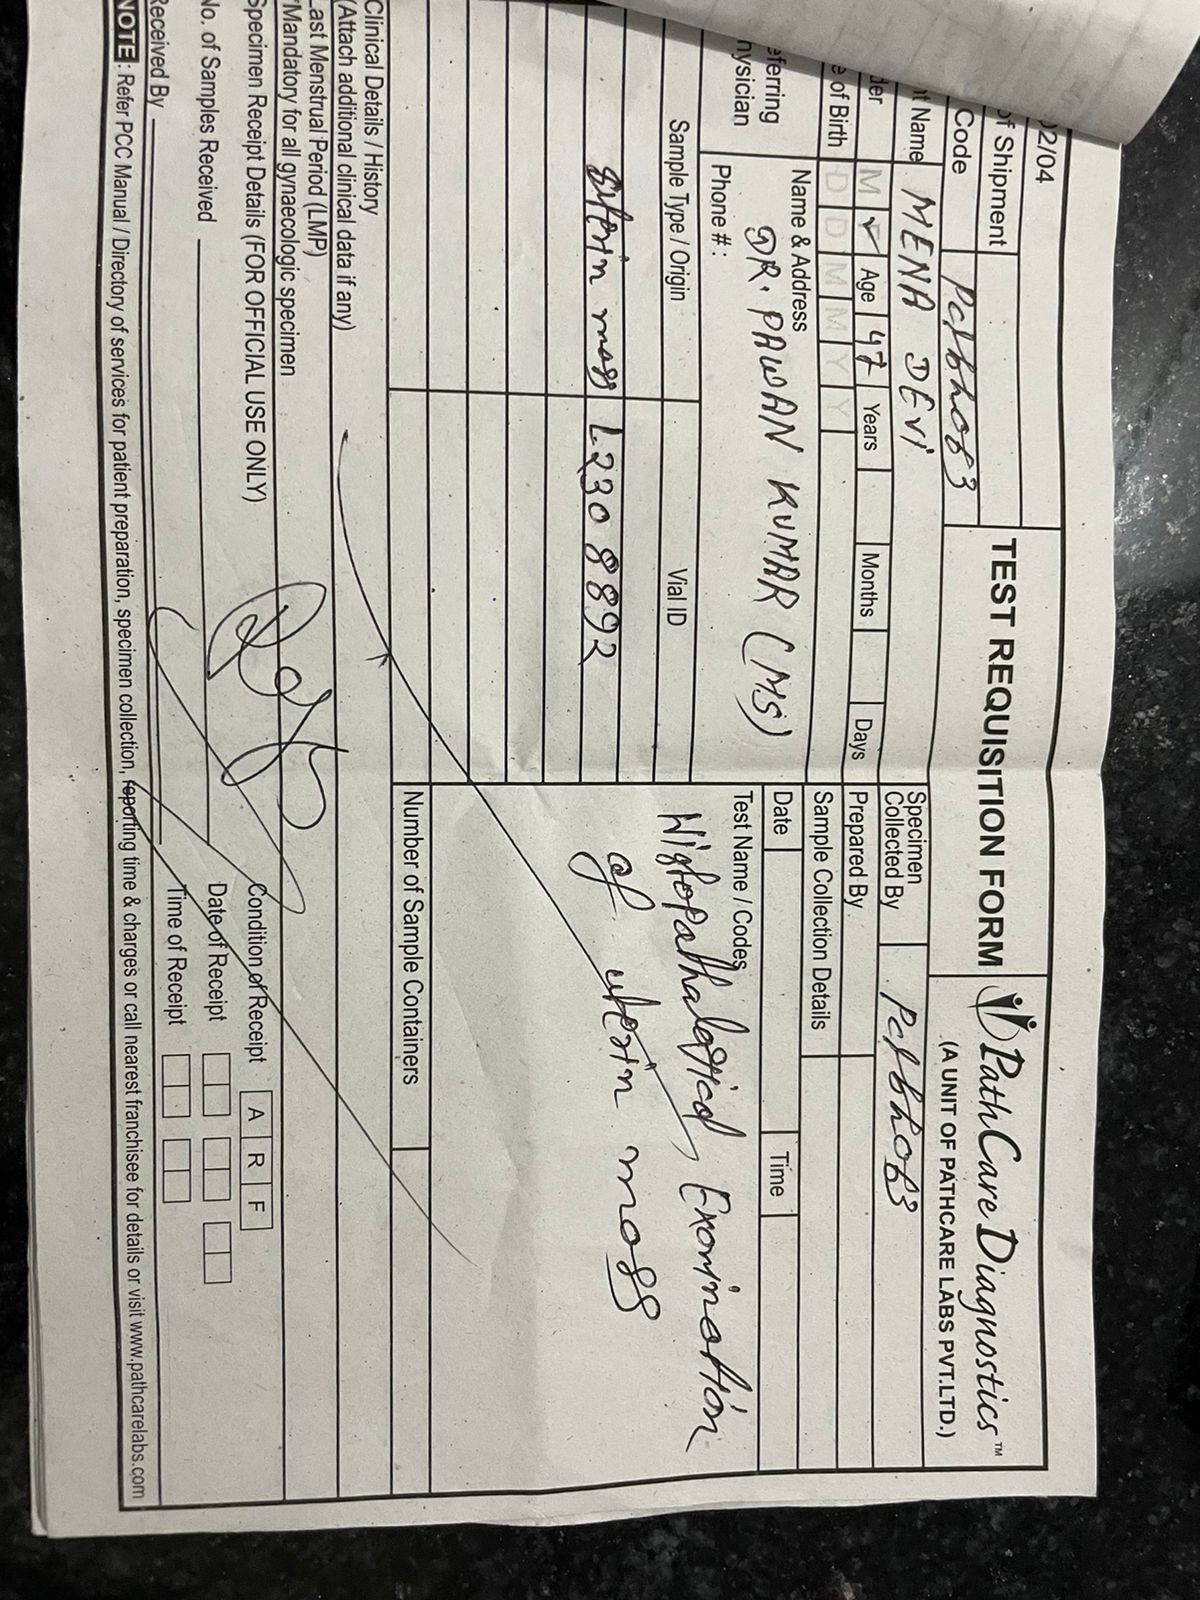 02/04
TEST REQUISITION FORM
PathCare Diagnostics™
(A UNIT OF PATHCARE LABS PVT.LTD.)
of Shipment
Code
nt Name MENA DEVI
der M ✓ Age 47 Years Months Days
e of Birth D D M M Y Y
eferring
hysician
Name & Address
DR. PAWAN KUMAR (MS)
Phone #:
Specimen
Collected By
Prepared By
Sample Collection Details
Date Time
Sample Type / Origin Vial ID
mass L2308892
Test Name / Codes
Histopathalogical Examination
of uterin mass
Number of Sample Containers
Clinical Details / History
(Attach additional clinical data if any)
Last Menstrual Period (LMP)
*Mandatory for all gynaecologic specimen
Specimen Receipt Details (FOR OFFICIAL USE ONLY)
No. of Samples Received
Received By
Condition of Receipt A R F
Date of Receipt
Time of Receipt
NOTE : Refer PCC Manual / Directory of services for patient preparation, specimen collection, reporting time & charges or call nearest franchisee for details or visit www.pathcarelabs.com